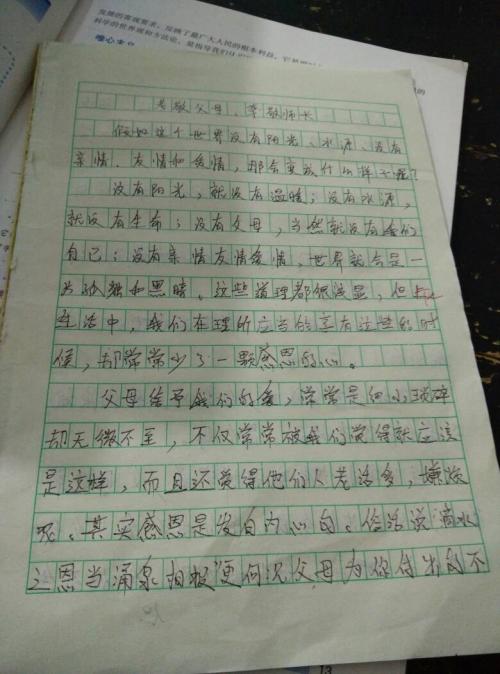 发展的客观要求，反映了最广大人民的根本利益，
科学的世界观和方法论，是指导我们
唯心主义
孝敬父母、尊敬师长
假如这个世界没有阳光、水源、没有
亲情、友情和爱情，那会变成什么样子呢？
没有阳光，就没有温暖；没有水源，
就没有生命；没有父母，当然就没有我们
自己；没有亲情友情爱情，世界就会是一
片孤独和黑暗。这些道理都很浅显，但
生活中，我们在理所应当的享有这些的时
候，却常常少了一颗感恩的心。
父母给予我们的爱，常常是细小琐碎
却无微不至，不仅常常被我们觉得就应该
是这样，而且还觉得他们人老话多，嫌
呢。其实感恩是发自内心的。俗话说“滴水
之恩当涌泉相报”更何况父母为你付出的不
13